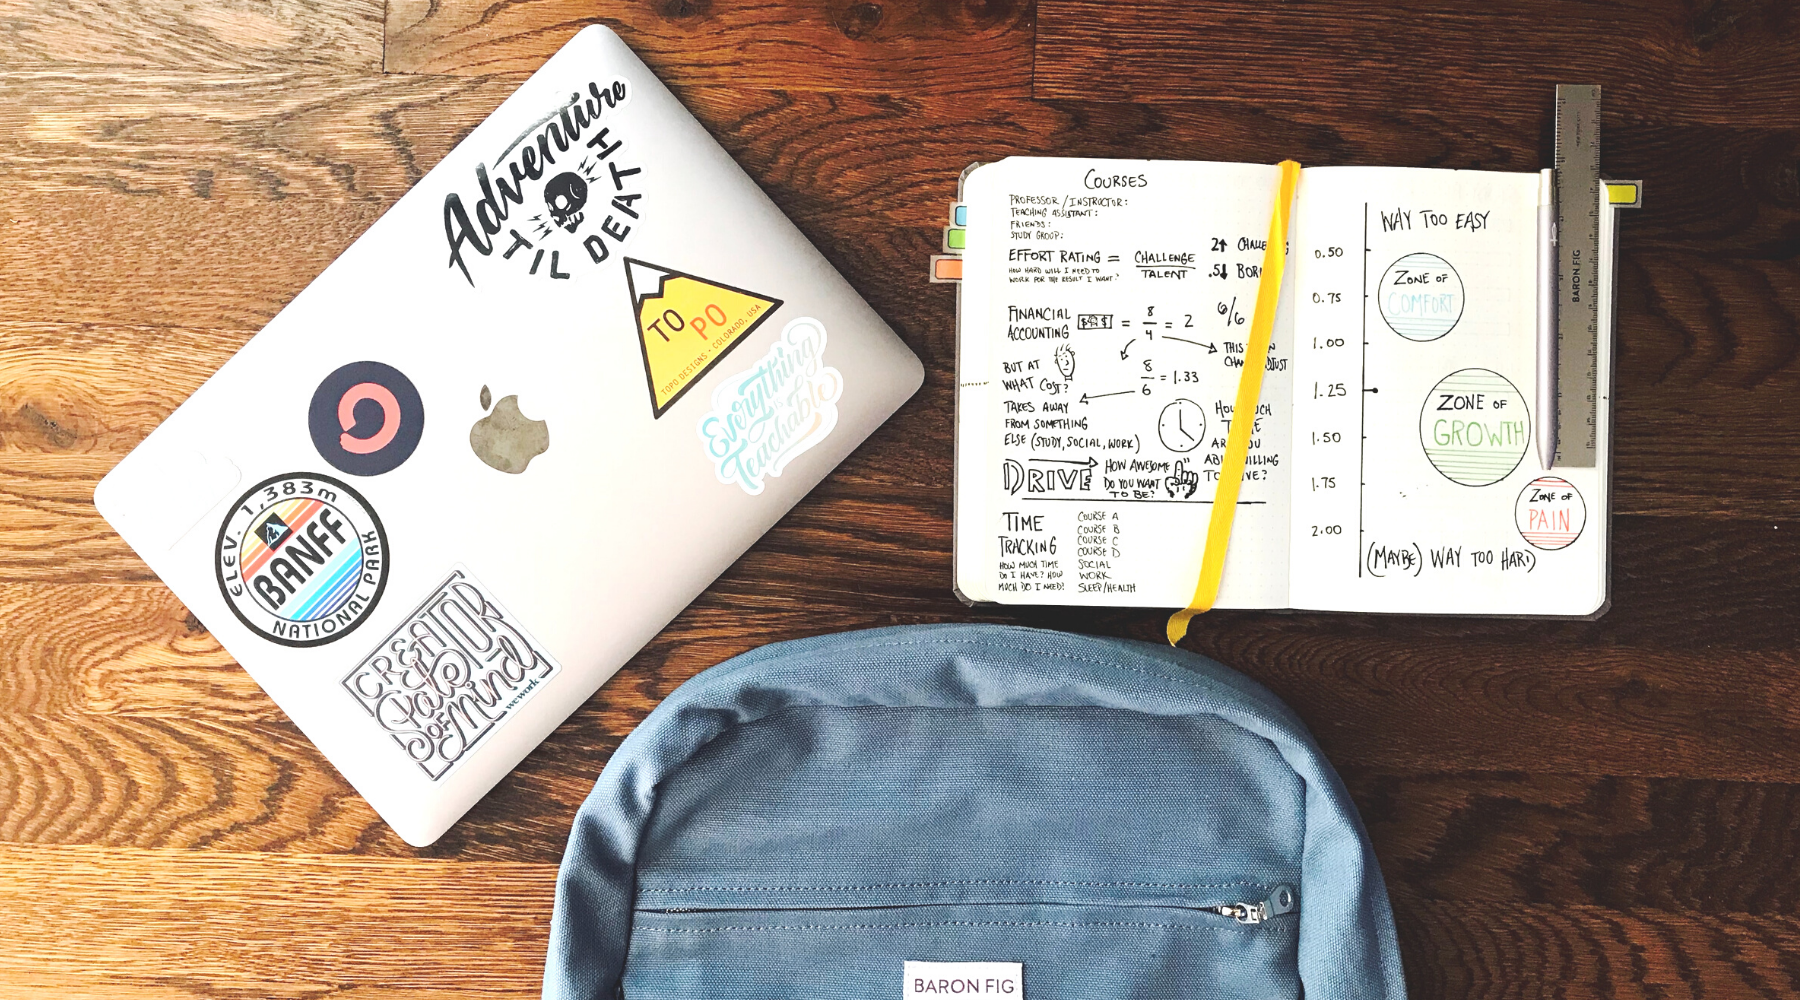 Adventure
'TIL DEATH
TO PO
TOPO DESIGNS • COLORADO, USA
Everything
is
Teachable
ELEV. 1,383m
BANFF
NATIONAL PARK
CREATOR
State
OF Mind
wework
COURSES
PROFESSOR / INSTRUCTOR:
TEACHING ASSISTANT:
FRIENDS:
STUDY GROUP:
EFFORT RATING = CHALLENGE
TALENT
HOW HARD WILL I NEED TO
WORK FOR THE RESULT I WANT?
2↑
.5↓
FINANCIAL
ACCOUNTING
= 8
4
= 2
6/6
THIS
BUT AT
WHAT COST?
8
6
= 1.33
TAKES AWAY
FROM SOMETHING
ELSE (STUDY, SOCIAL, WORK)
ARE YOU
DRIVE
HOW AWESOME
DO YOU WANT
TO BE?
TIME
TRACKING
HOW MUCH TIME
DO I HAVE? HOW
MUCH DO I NEED?
COURSE A
COURSE B
COURSE C
COURSE D
SOCIAL
WORK
SLEEP/HEALTH
WAY TOO EASY
0.50
0.75
1.00
1.25
1.50
1.75
2.00
ZONE OF
COMFORT
ZONE OF
GROWTH
ZONE OF
PAIN
(MAYBE) WAY TOO HARD
BARON FIG
BARON FIG